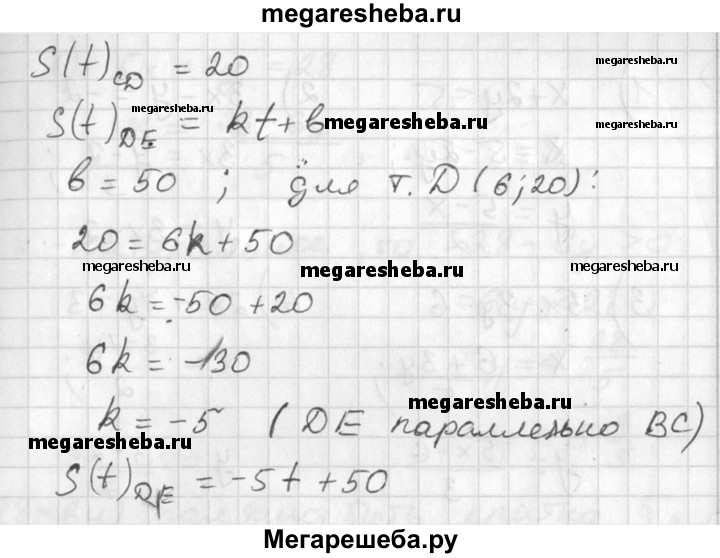 megaresheba.ru
S(t)CD = 20 megaresheba.ru
megaresheba.ru
S(t)DE = kt + в megaresheba.ru megaresheba.ru
в = 50 ; для т. D (6; 20):
20 = 6k + 50
megaresheba.ru megaresheba.ru megaresheba.ru
6k = -50 + 20
6k = -30
megaresheba.ru
k = -5 ( DE параллельно BC)
megaresheba.ru
S(t)DE = -5t + 50
Мегарешеба.ру